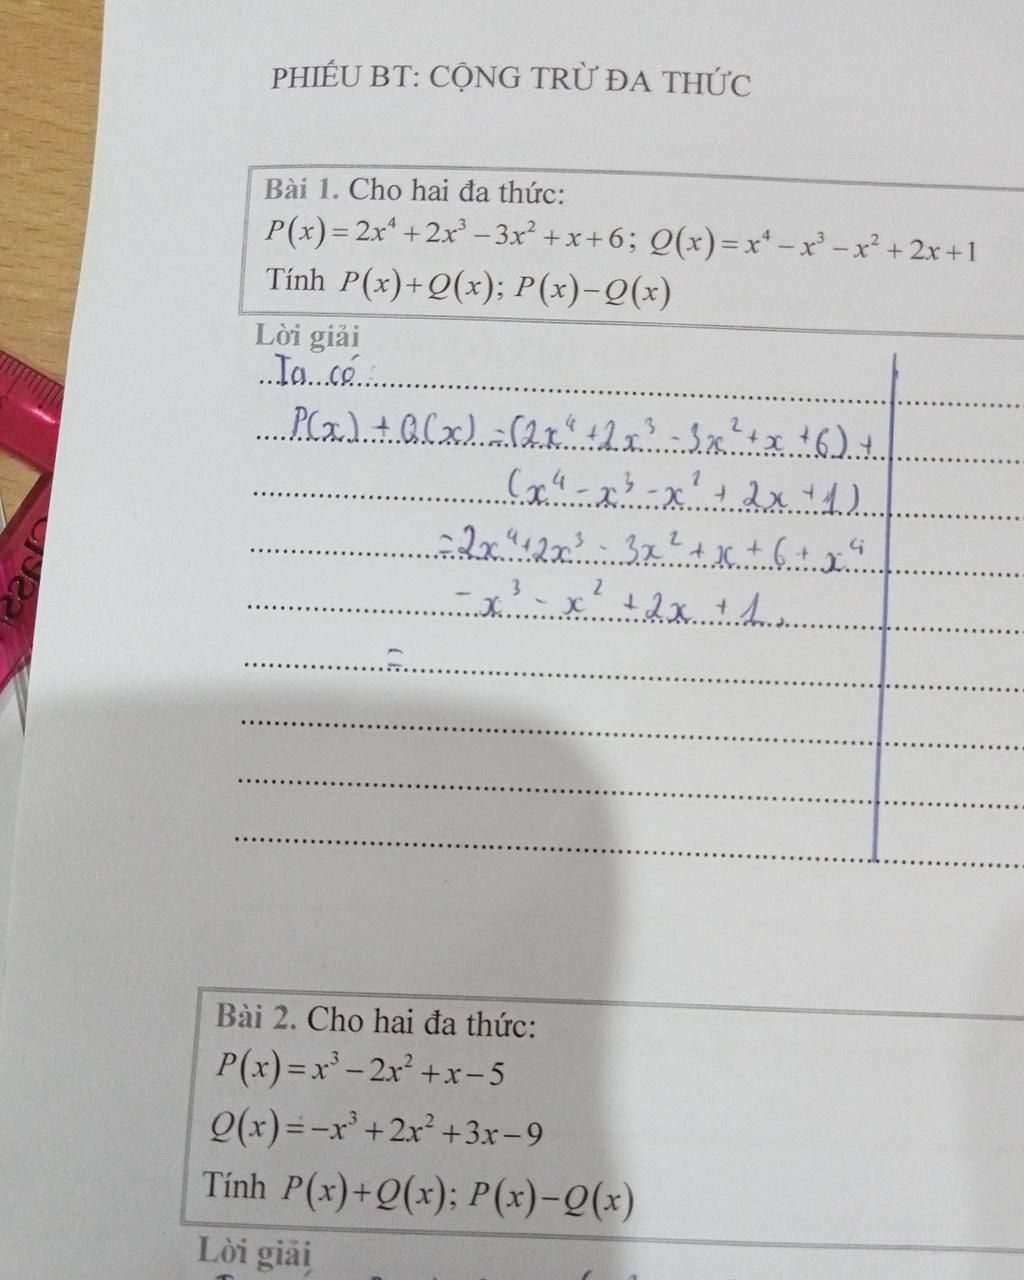 PHIẾU BT: CỘNG TRỪ ĐA THỨC
Bài 1. Cho hai đa thức:
P(x)=2x⁴+2x³−3x²+x+6; Q(x)=x⁴−x³−x²+2x+1
Tính P(x)+Q(x); P(x)−Q(x)
Lời giải
Ta có:
P(x) + Q(x) = (2x⁴ + 2x³ - 3x² + x + 6) +
(x⁴ - x³ - x² + 2x + 1)
= 2x⁴ + 2x³ - 3x² + x + 6 + x⁴
- x³ - x² + 2x + 1.
=
Bài 2. Cho hai đa thức:
P(x)=x³−2x²+x−5
Q(x)=−x³+2x²+3x−9
Tính P(x)+Q(x); P(x)−Q(x)
Lời giải